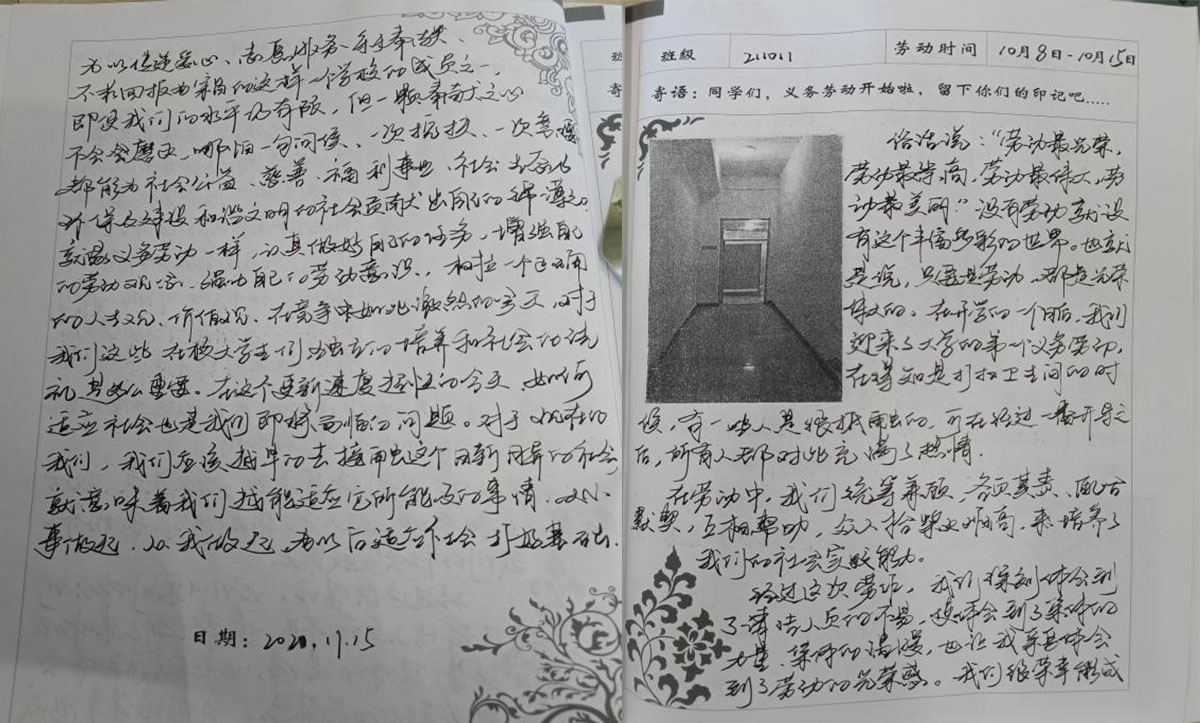 为以传递爱心、志愿服务、无私奉献、
不求回报为宗旨的这样一个学校的成员之一,
即使我们的水平仍有限,但一颗奉献之心
不会磨灭,哪怕一句问候、一次搀扶、一次
都能为社会公益、慈善、福利事业、社会
环保与建设和谐文明的社会贡献出自己的绵薄。
就像义务劳动一样,认真做好自己的任务,增强自己
的劳动观念、强化自己的劳动意识,树立一个正确
的人生观、价值观、在竞争如此激烈的今天,对于
我们这些在校大学生们独立的培养和社会的
是多么重要。在这个更新速度的今天,如何
适应社会也是我们即将面临的问题。对于现在的
我们,我们应该越早的去接触这个日新月异的社会
就意味着我们越能适应它所能及的事情,从小
事做起,从我做起,为以后适应社会打好基石出。
日期:2020.11.15
班
寄
班级
211011
劳动时间
10月8日-10月15日
寄语:同学们,义务劳动开始啦,留下你们的印记吧.....
俗话说:“劳动最光荣,
劳动最崇高,劳动最伟大,劳
动最美丽。”没有劳动就没
有这个丰富多彩的世界。也就
是说,只要是劳动,都是光荣
伟大的。在开学的一个月后,我们
迎来了大学的第一个义务劳动,
在得知是打扫卫生间的时
候,有一些人是很抵触的,可在经过一番开导之
后,所有人都对此充满了热情。
在劳动中,我们统筹兼顾、各负其责、配合
默契,互相帮助,众人拾柴火焰高,来培养了
我们的社会实践能力。
经过这次劳动,我们深刻体会到
了清洁人员的不易,使体会到了集体的
力量、集体的温暖,也让我亲身体会
到了劳动的光荣感。我们很荣幸能成